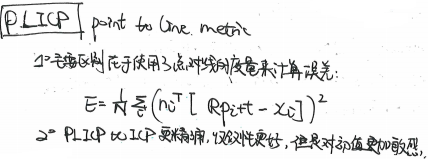 PLICP point to line metric
1° 主要区别在于使用了点对线的度量来计算误差:
E = 1/N Σ_i (n_i^T [Rp_i+t - x_i])^2
2° PLICP 比 ICP 更精确,收敛性更好,但是对初值更加敏感,